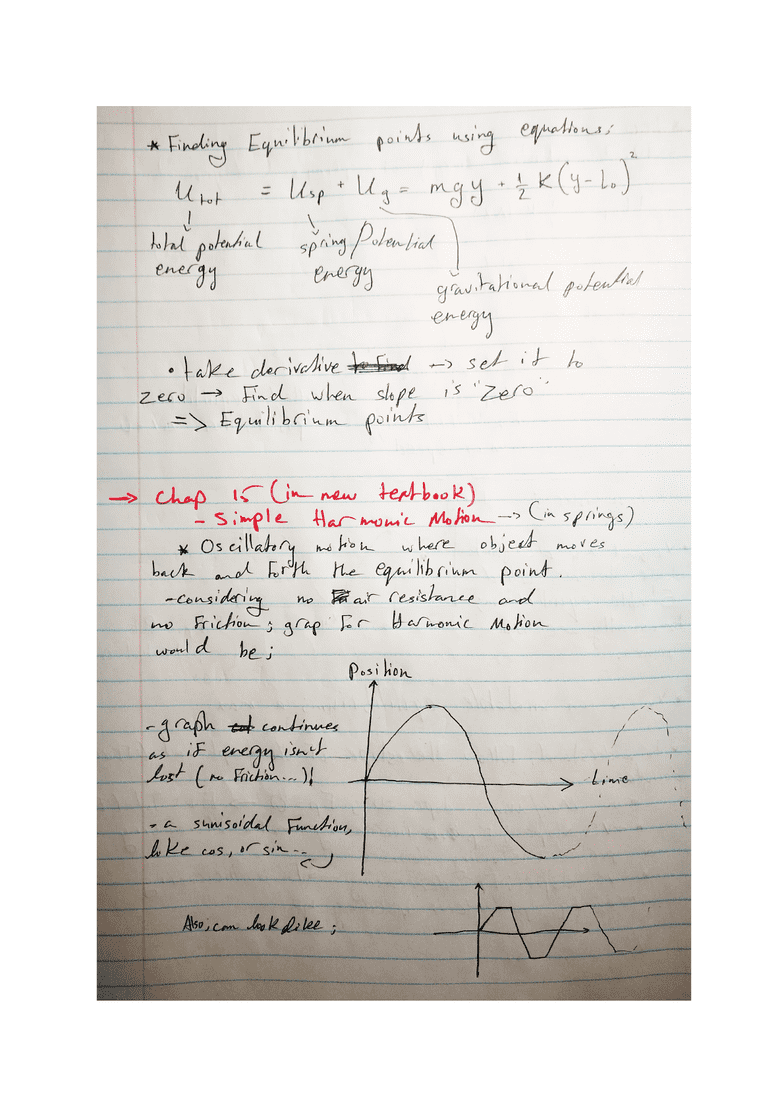 * Finding Equilibrium points using equations;
U_tot = U_sp + U_g = mgy + ½ K(y - L₀)²
total potential energy
spring Potential energy
gravitational potential energy
• take derivative → set it to
zero → Find when slope is "Zero"
=> Equilibrium points
→ Chap 15 (in new textbook)
- Simple Harmonic Motion → (in springs)
* Oscillatory motion where object moves
back and forth the equilibrium point.
- considering no air resistance and
no Friction; grap for Harmonic Motion
would be;
Position
- graph continues
as if energy isn't
lost (no Friction...)!
time
- a sunisoidal Function,
like cos, or sin...
Also, can look like;